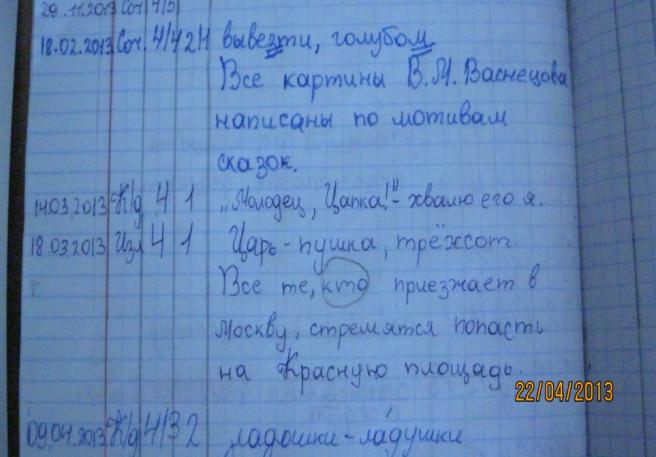 29.11.2013 Соч 4/3
18.02.2013 Соч. 4/4 2 1 вывезти, голубом
Все картины В.М. Васнецова
написаны по мотивам
сказок.
14.03.2013 К/д 4 1 „Молодец, Цапка!"- хвалю его я.
18.03.2013 Изл 4 1 Царь-пушка, трёхсот.
Все те, кто приезжает в
Москву, стремятся попасть
на Красную площадь.
22/04/2013
09.04.2013 К/д 4/3 2 ладошки-ладушки